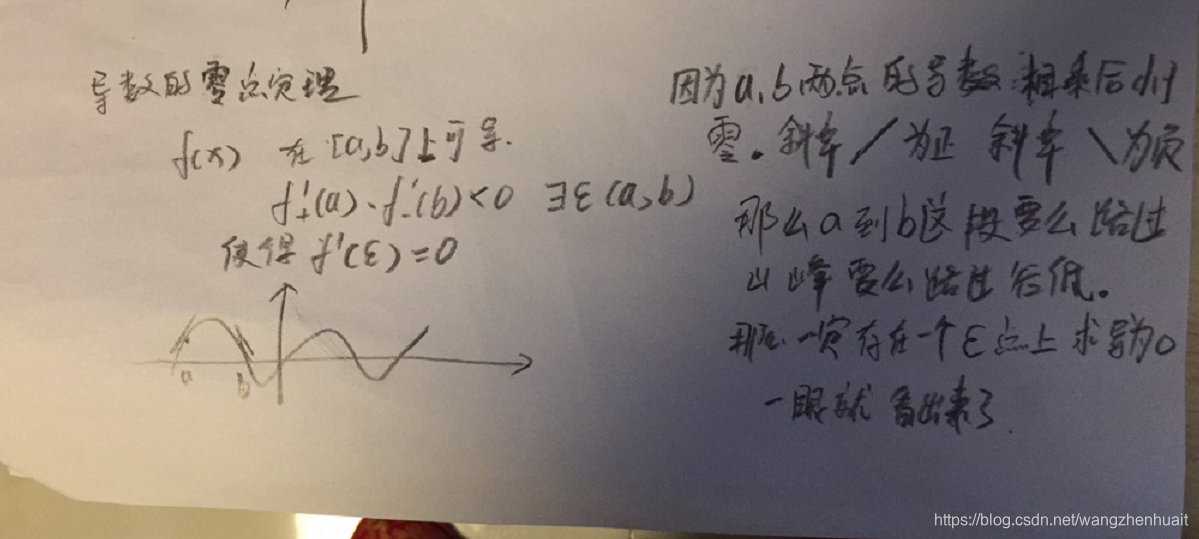 导数的零点定理
f(x) 在[a,b]上可导.
f'₊(a)·f'₋(b)<0 ∃ε(a,b)
使得 f'(ε)=0
a
b
因为a,b两点的导数相乘后小于
零。斜率／为正 斜率＼为负
那么a到b这段要么路过
山峰要么路过谷低。
那么一定存在一个ε点上求导为0
一眼就看出来了.
https://blog.csdn.net/wangzhenhuait